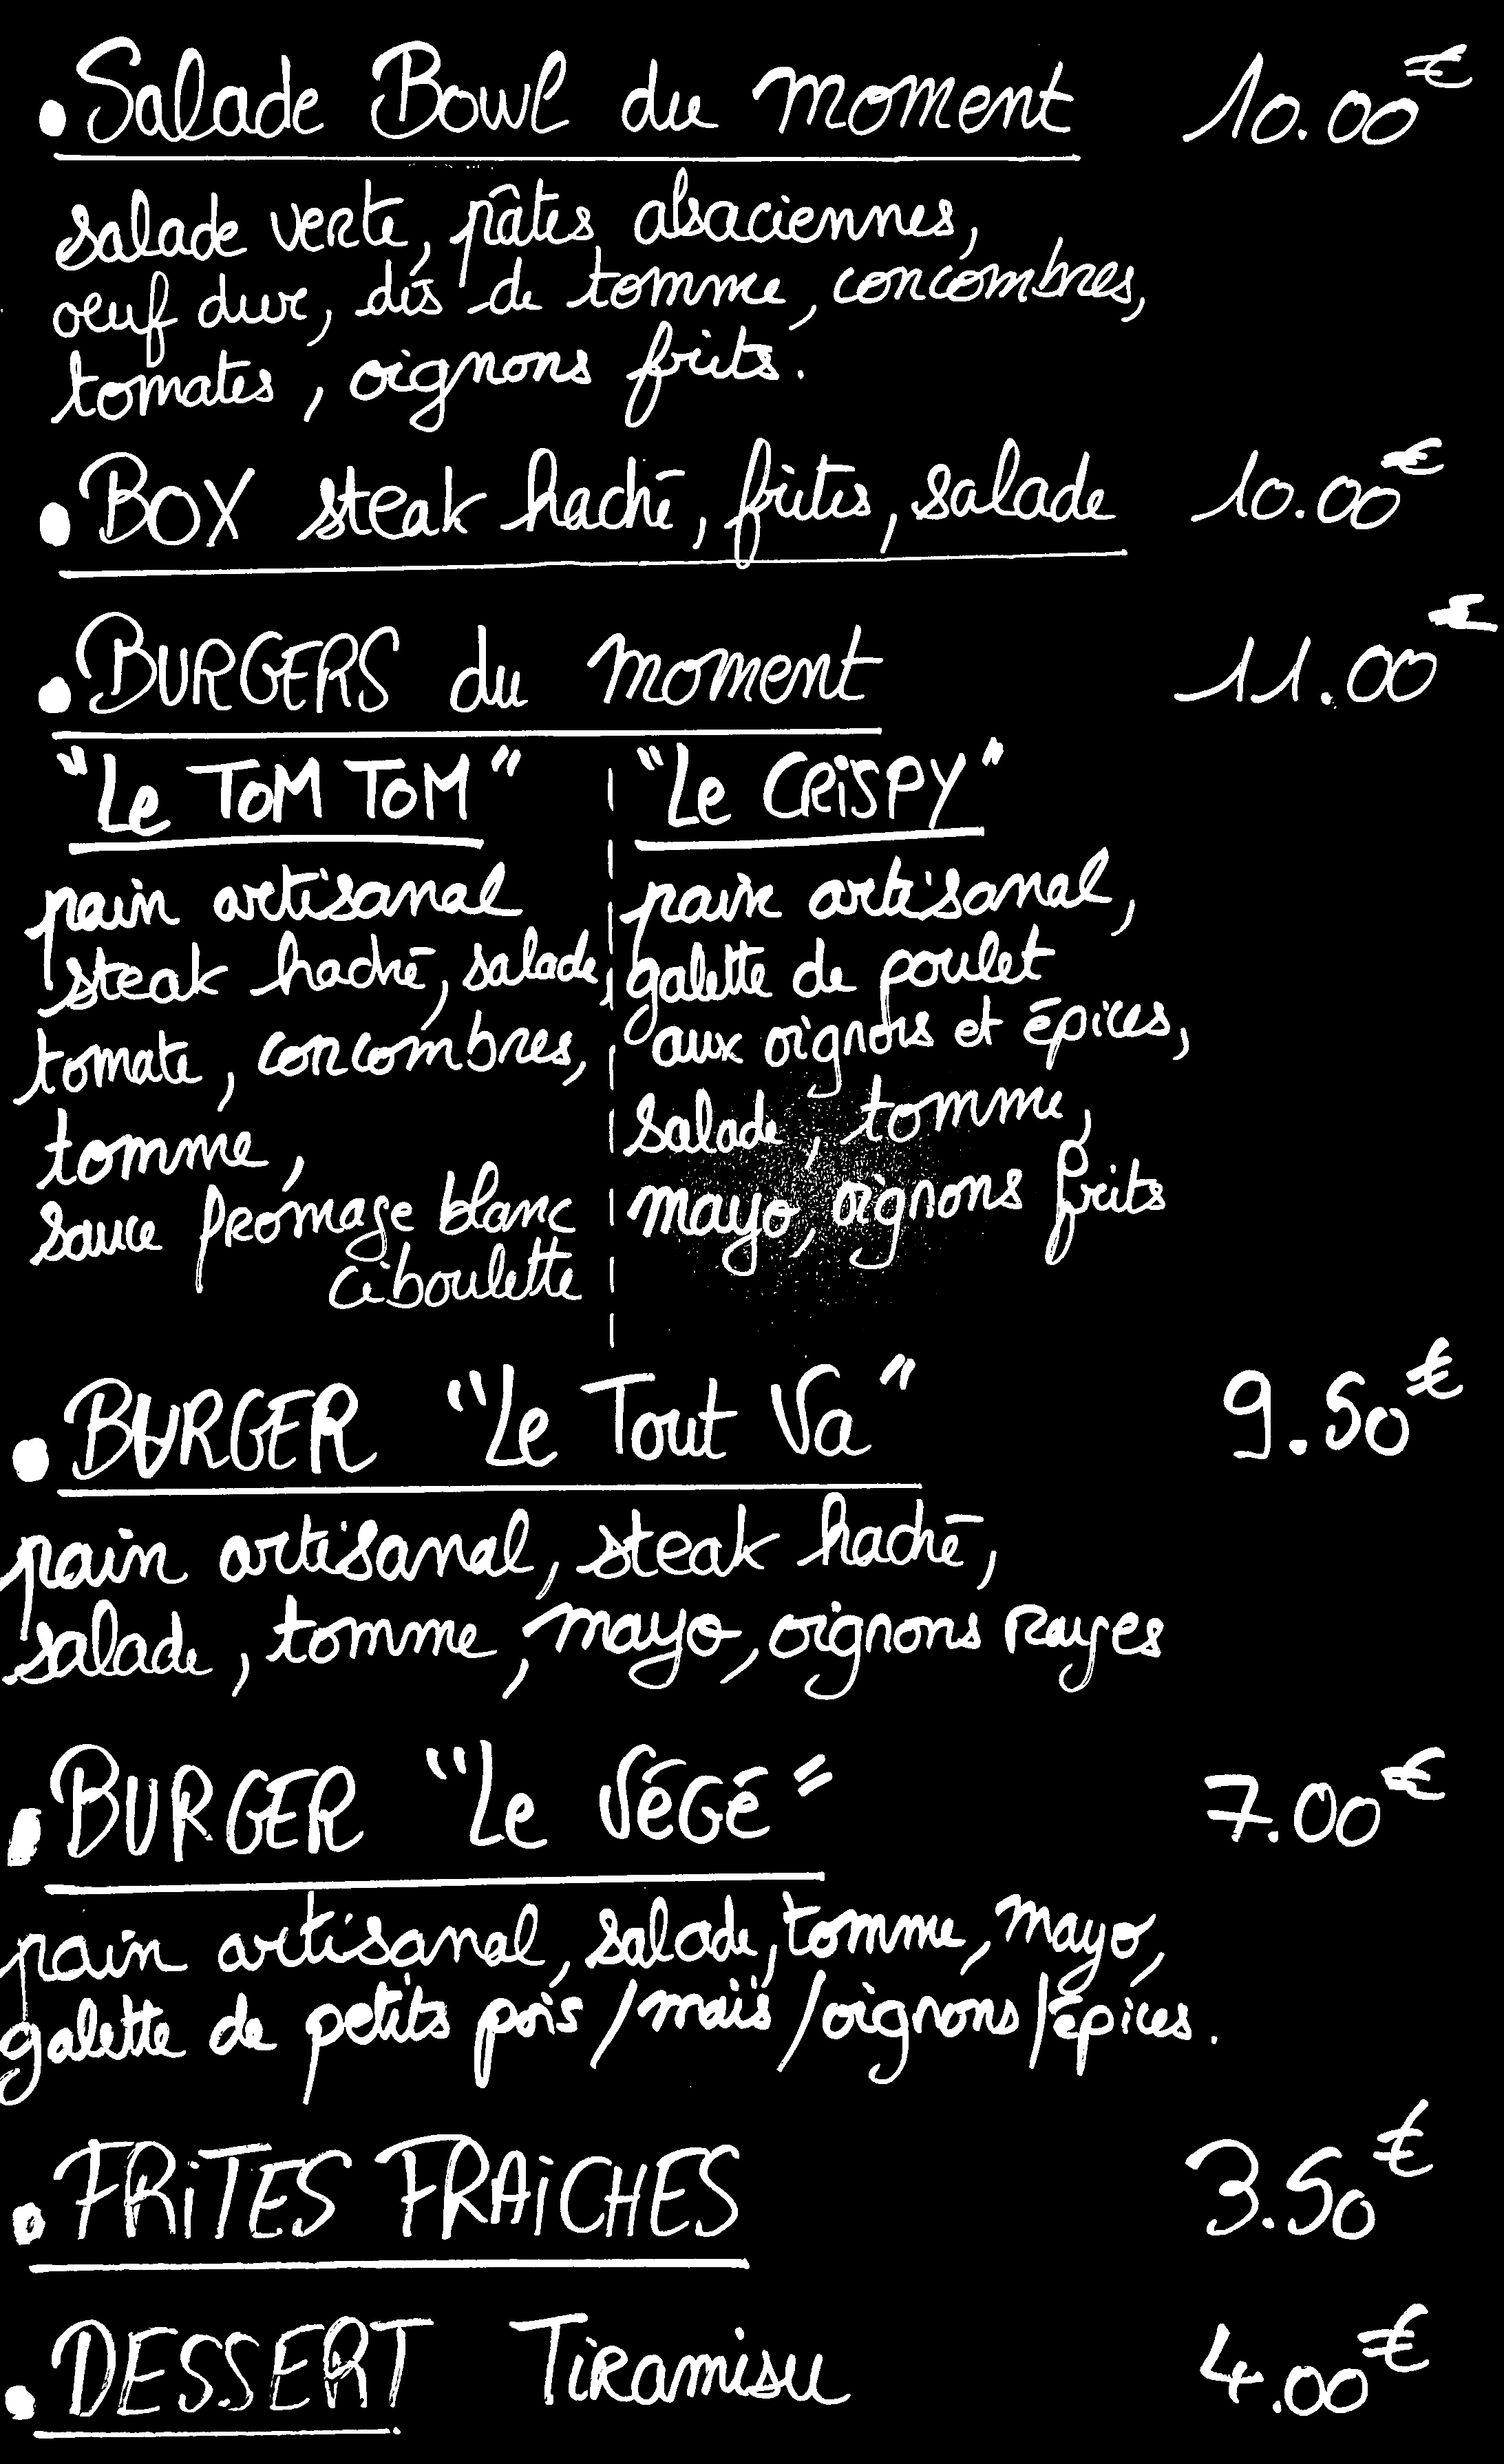 • Salade Bowl du moment 10.00€
salade verte, pâtes alsaciennes,
oeuf dur, dés de tomme, concombres,
tomates, oignons frits.
• BOX steak haché, frites, salade 10.00€
• BURGERS du moment 11.00€
"Le TOM TOM"
pain artisanal
steak haché, salade,
tomate, concombres,
tomme,
sauce fromage blanc
ciboulette
"Le CRiSPY"
pain artisanal,
galette de poulet
aux oignons et épices,
salade, tomme,
mayo, oignons frits
• BURGER "Le Tout Va" 9.50€
pain artisanal, steak haché,
salade, tomme, mayo, oignons Rouges
• BURGER "Le VéGé" 7.00€
pain artisanal, salade, tomme, mayo,
galette de petits pois/maïs/oignons/épices.
• FRiTES FRAiCHES 3.50€
• DESSERT Tiramisu 4.00€